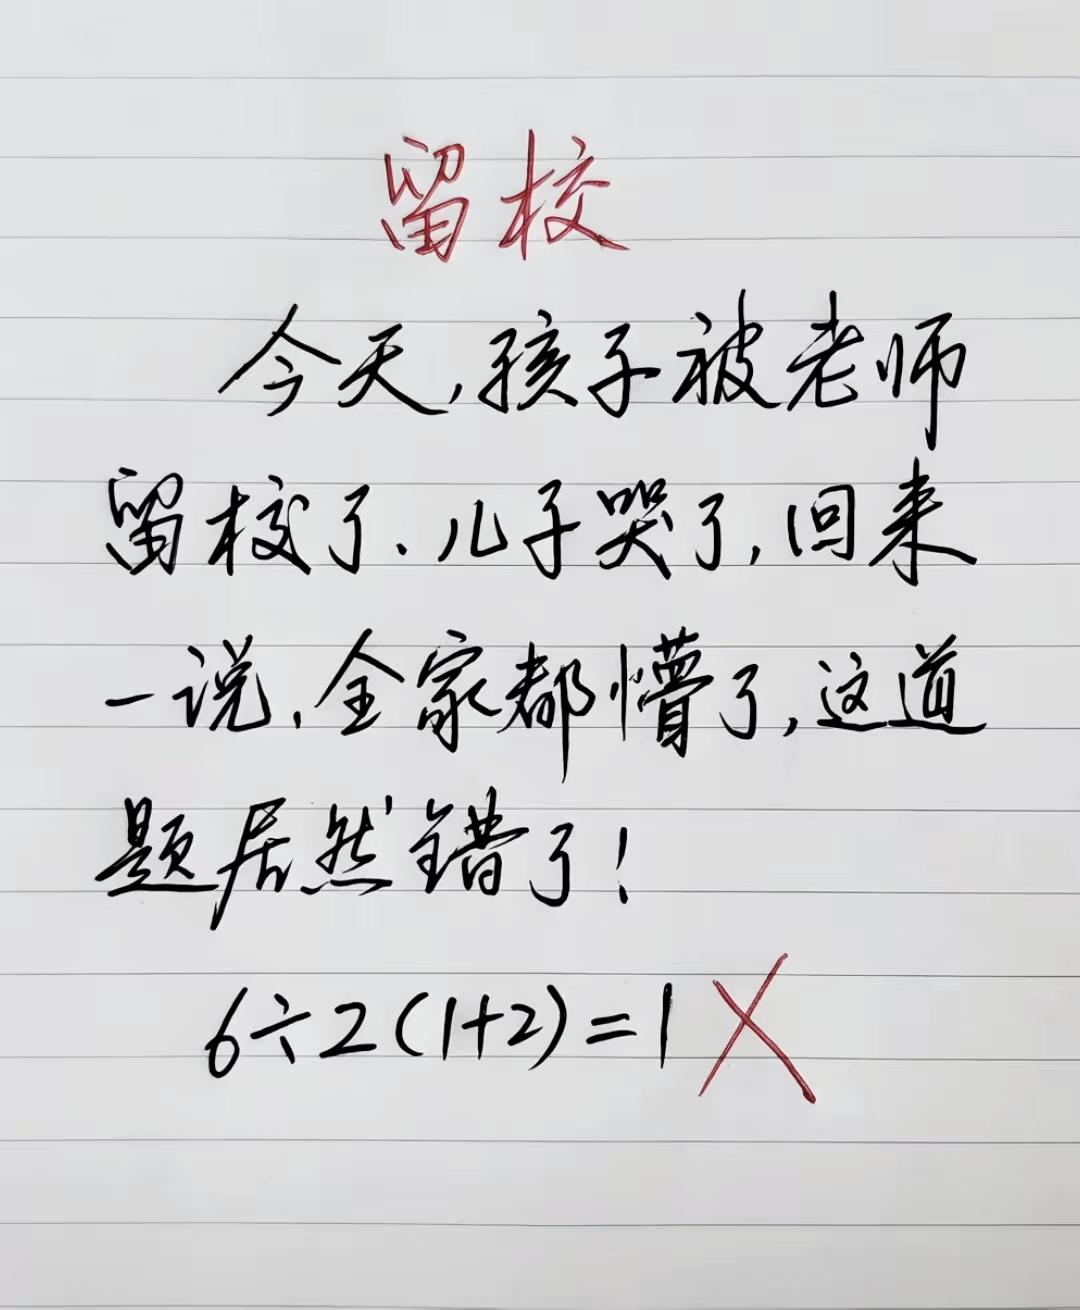 留校
今天,孩子被老师
留校了.儿子哭了,回来
一说,全家都懵了,这道
题居然错了!
6÷2(1+2)=1 ╳